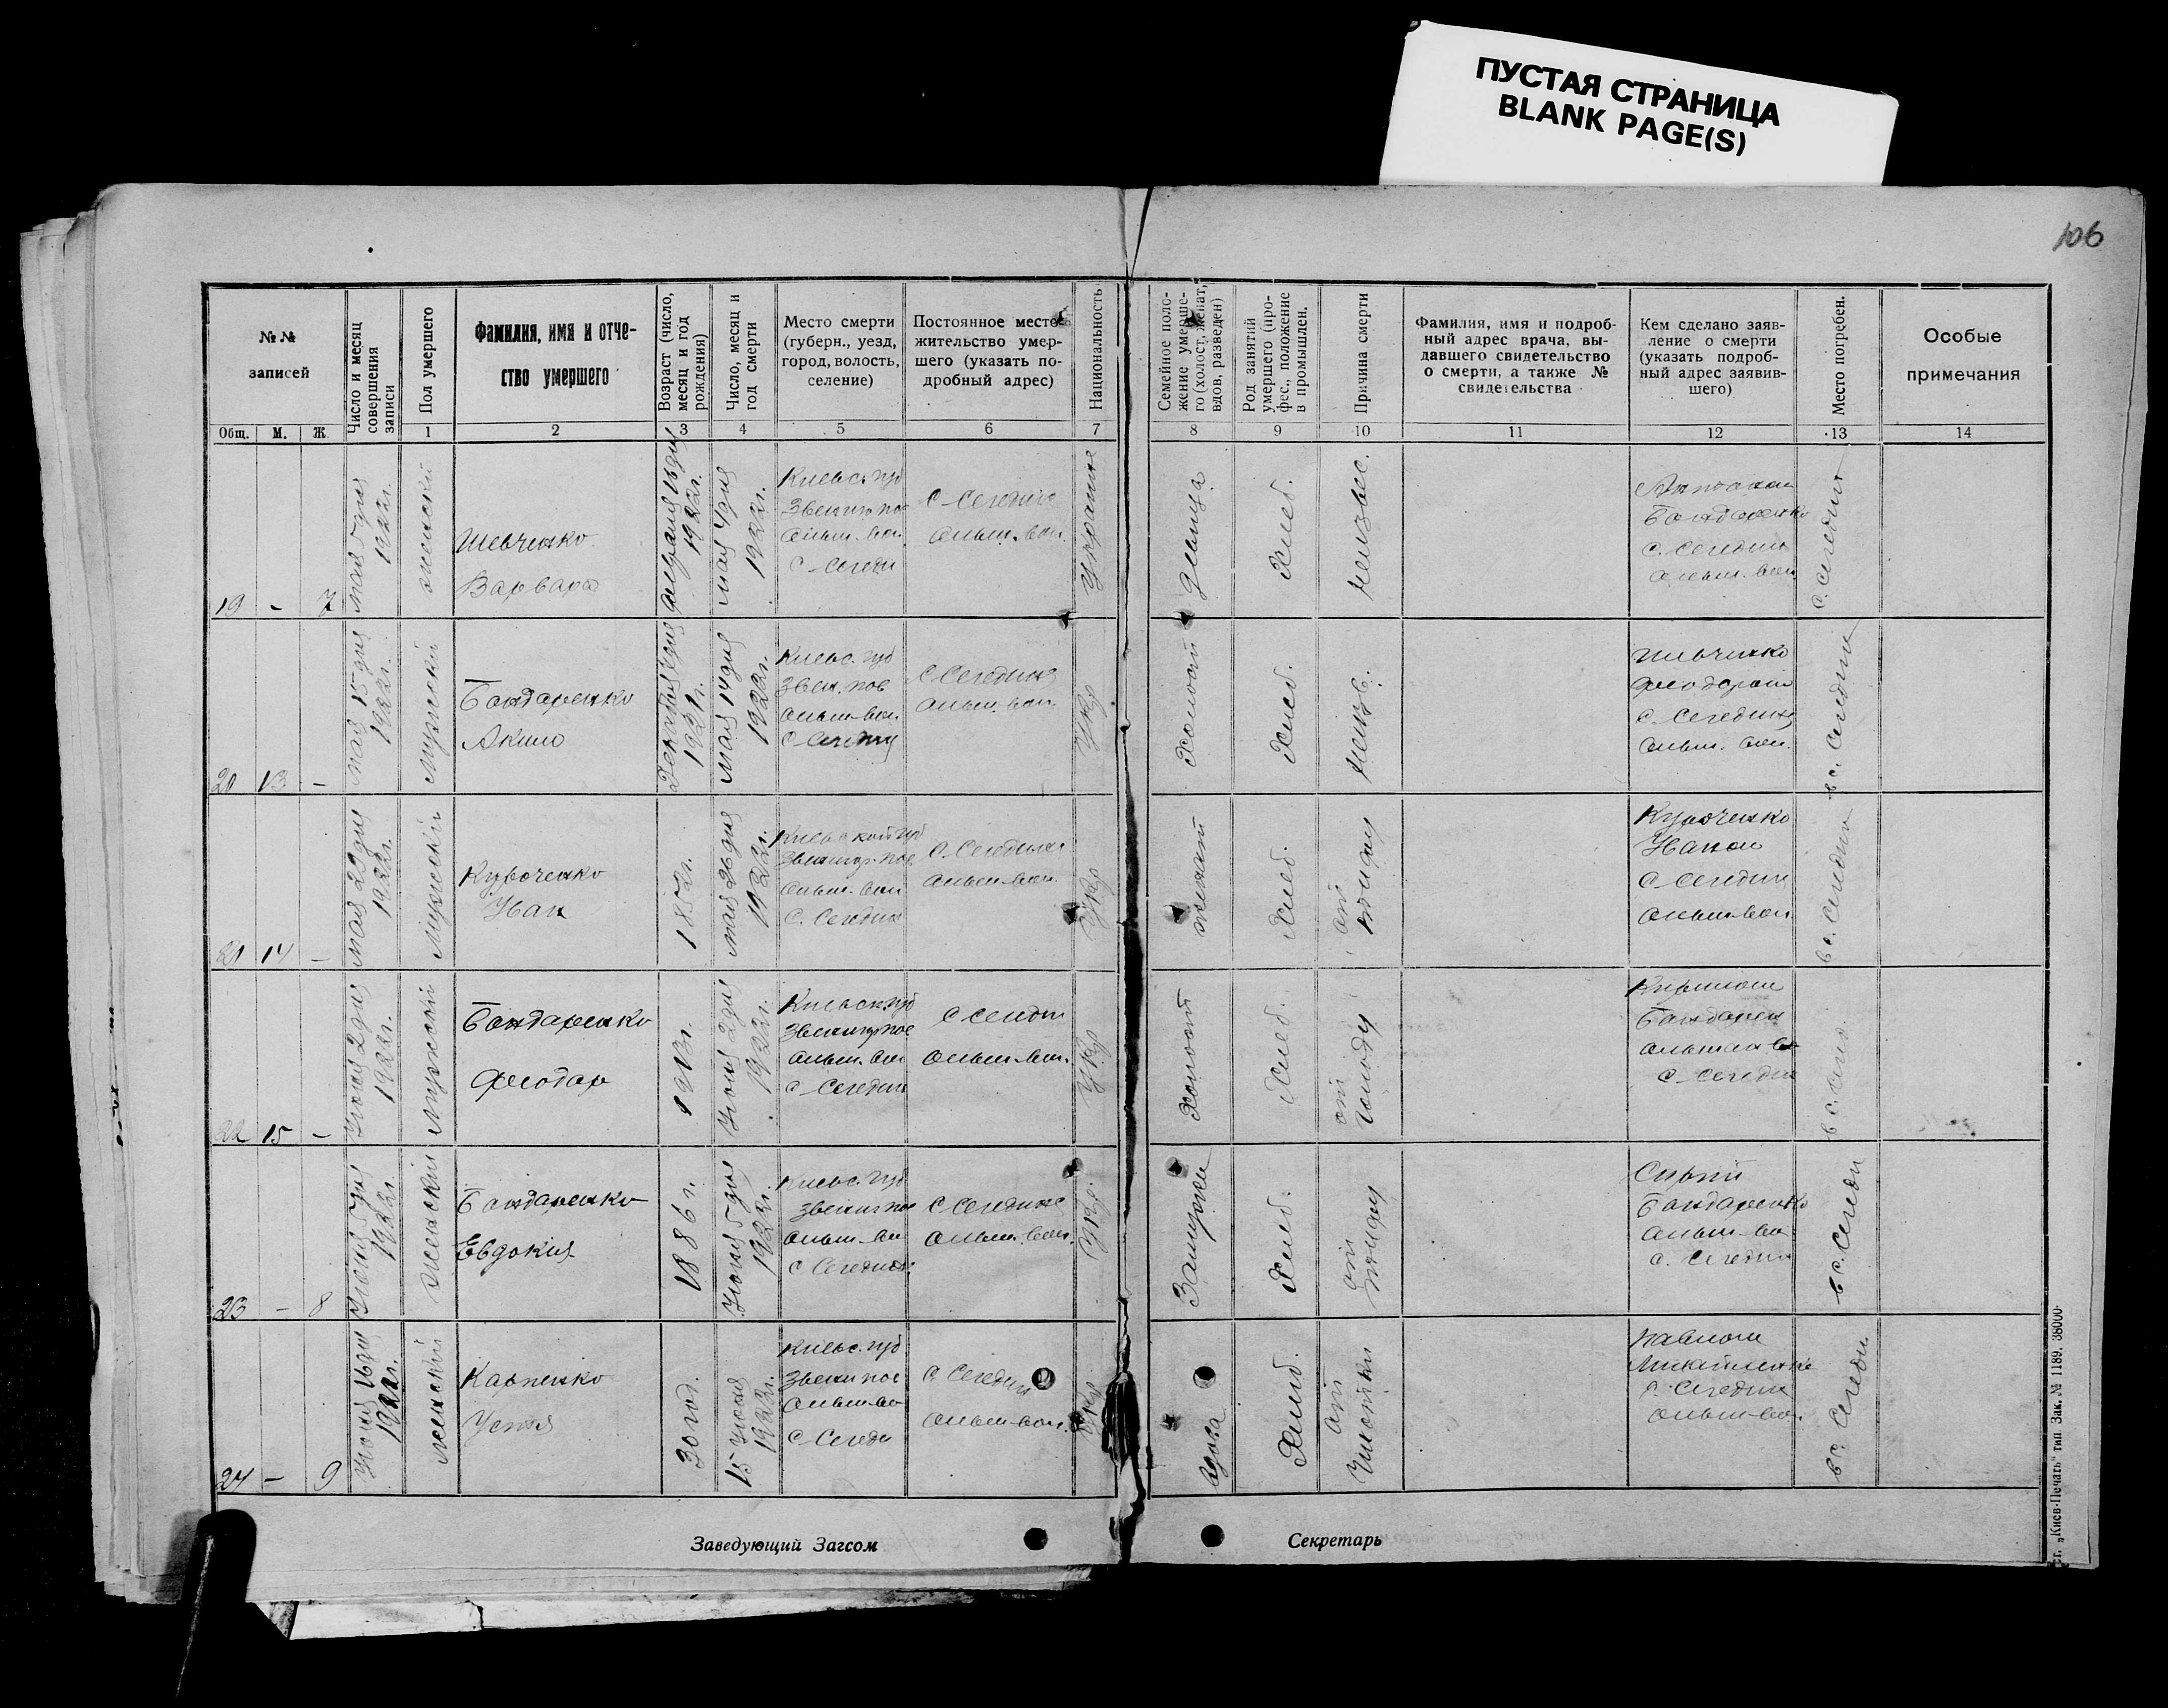 ПУСТАЯ СТРАНИЦА
BLANK PAGE(S)
106
№ №
записей
Общ. М. Ж
Число и месяц
совершения
записи
Пол умершего
1
Фамилия, имя и отче-
ство умершего
2
Возраст (число,
месяц и год
рождения)
3
Число, месяц и
год смерти
4
Место смерти
(губерн., уезд,
город, волость,
селение)
5
Постоянное место-
жительство умер-
шего (указать по-
дробный адрес)
6
Национальность
7
Семейное поло-
жение умерше-
го (холост, женат,
вдов, разведен)
8
Род занятий
умершего (про-
фес., положение
в промышлен.
9
Причина смерти
10
Фамилия, имя и подроб-
ный адрес врача, вы-
давшего свидетельство
о смерти, а также №
свидетельства
11
Кем сделано заяв-
ление о смерти
(указать подроб-
ный адрес заявив-
шего)
12
Место погребен.
13
Особые
примечания
14
19 - 7
мая 5 дня
1922г.
женский
Шевченко
Варвара
февраля 16 дня
1922г.
мая 4 дня
1922г.
Киевс. губ
Звениг. пов
Ольш. вол
с Сегеди
с Сегедине
Ольш. вол.
Украинк
девица
Хлеб.
неизвес.
Бондаренко
с. Сегедин
Ольш. вол
с. Сегедин
20 13 -
мая 15 дня
1922г.
Мужский
Бондаренко
Аким
Декабря дня
1921г.
мая 14 дня
1922г.
Киевс. губ
Звен. пов
Ольш-вол
с-Сегедину
с Сегедину
Ольш. вол
Укр
Холостой
Хлеб.
неизв.
Шевченко
Феодором
с Сегедину
Ольш. вол.
в с. Сегедин
21 14 -
мая 29 дня
1922г.
Мужский
Куроченко
Иван
1852г.
мая 26 дня
1922г.
Киевской губ
Звенигор. пов.
Ольш. вол
с. Сегедин
с. Сегедине
Ольш. вол.
Укр
женат
Хлеб.
от
Куроченко
с Сегедин
Ольш. вол.
в с. Сегедин
22 15 -
Июня 2 дня
1922г.
Мужский
Бондаренко
Феодор
1913г.
Июня 2 дня
1922г.
Киевск. губ
Звениг пов
Ольш. вол
с Сегедин
с Сегеди
Ольш. вол.
Укр
Холост
Хлеб.
от
голоду
Бондарен
с Сегедин
в с. Сегед.
23 - 8
Июня 5 дня
1922г.
Женский
Бондаренко
Евдокия
1886г.
Июня 5 дня
1922г.
Киевс. губ
Звениг пов
Ольш-вол
с Сегедине
с Сегедине
Ольш. вол.
Укр.
Замужем
Хлеб.
от
Бондаренко
Ольш-во
с. Сегедин
в с. Сегеди
24 - 9
Июня 16 дня
1922г.
женский
Карпенко
Устя
30 год.
15 Июня
1922г.
Киевс. губ
Звени пов
Ольш-во
с Сегеди
с. Сегедин
Ольш-вол.
Укр.
вдова
Хлеб.
от
Павлом
с. Сегедин
Ольш-вол.
в с. Сегеди.
Заведующий Загсом
Секретарь
ст. „Киев-Печать" тип Зак. № 1189. 38000-